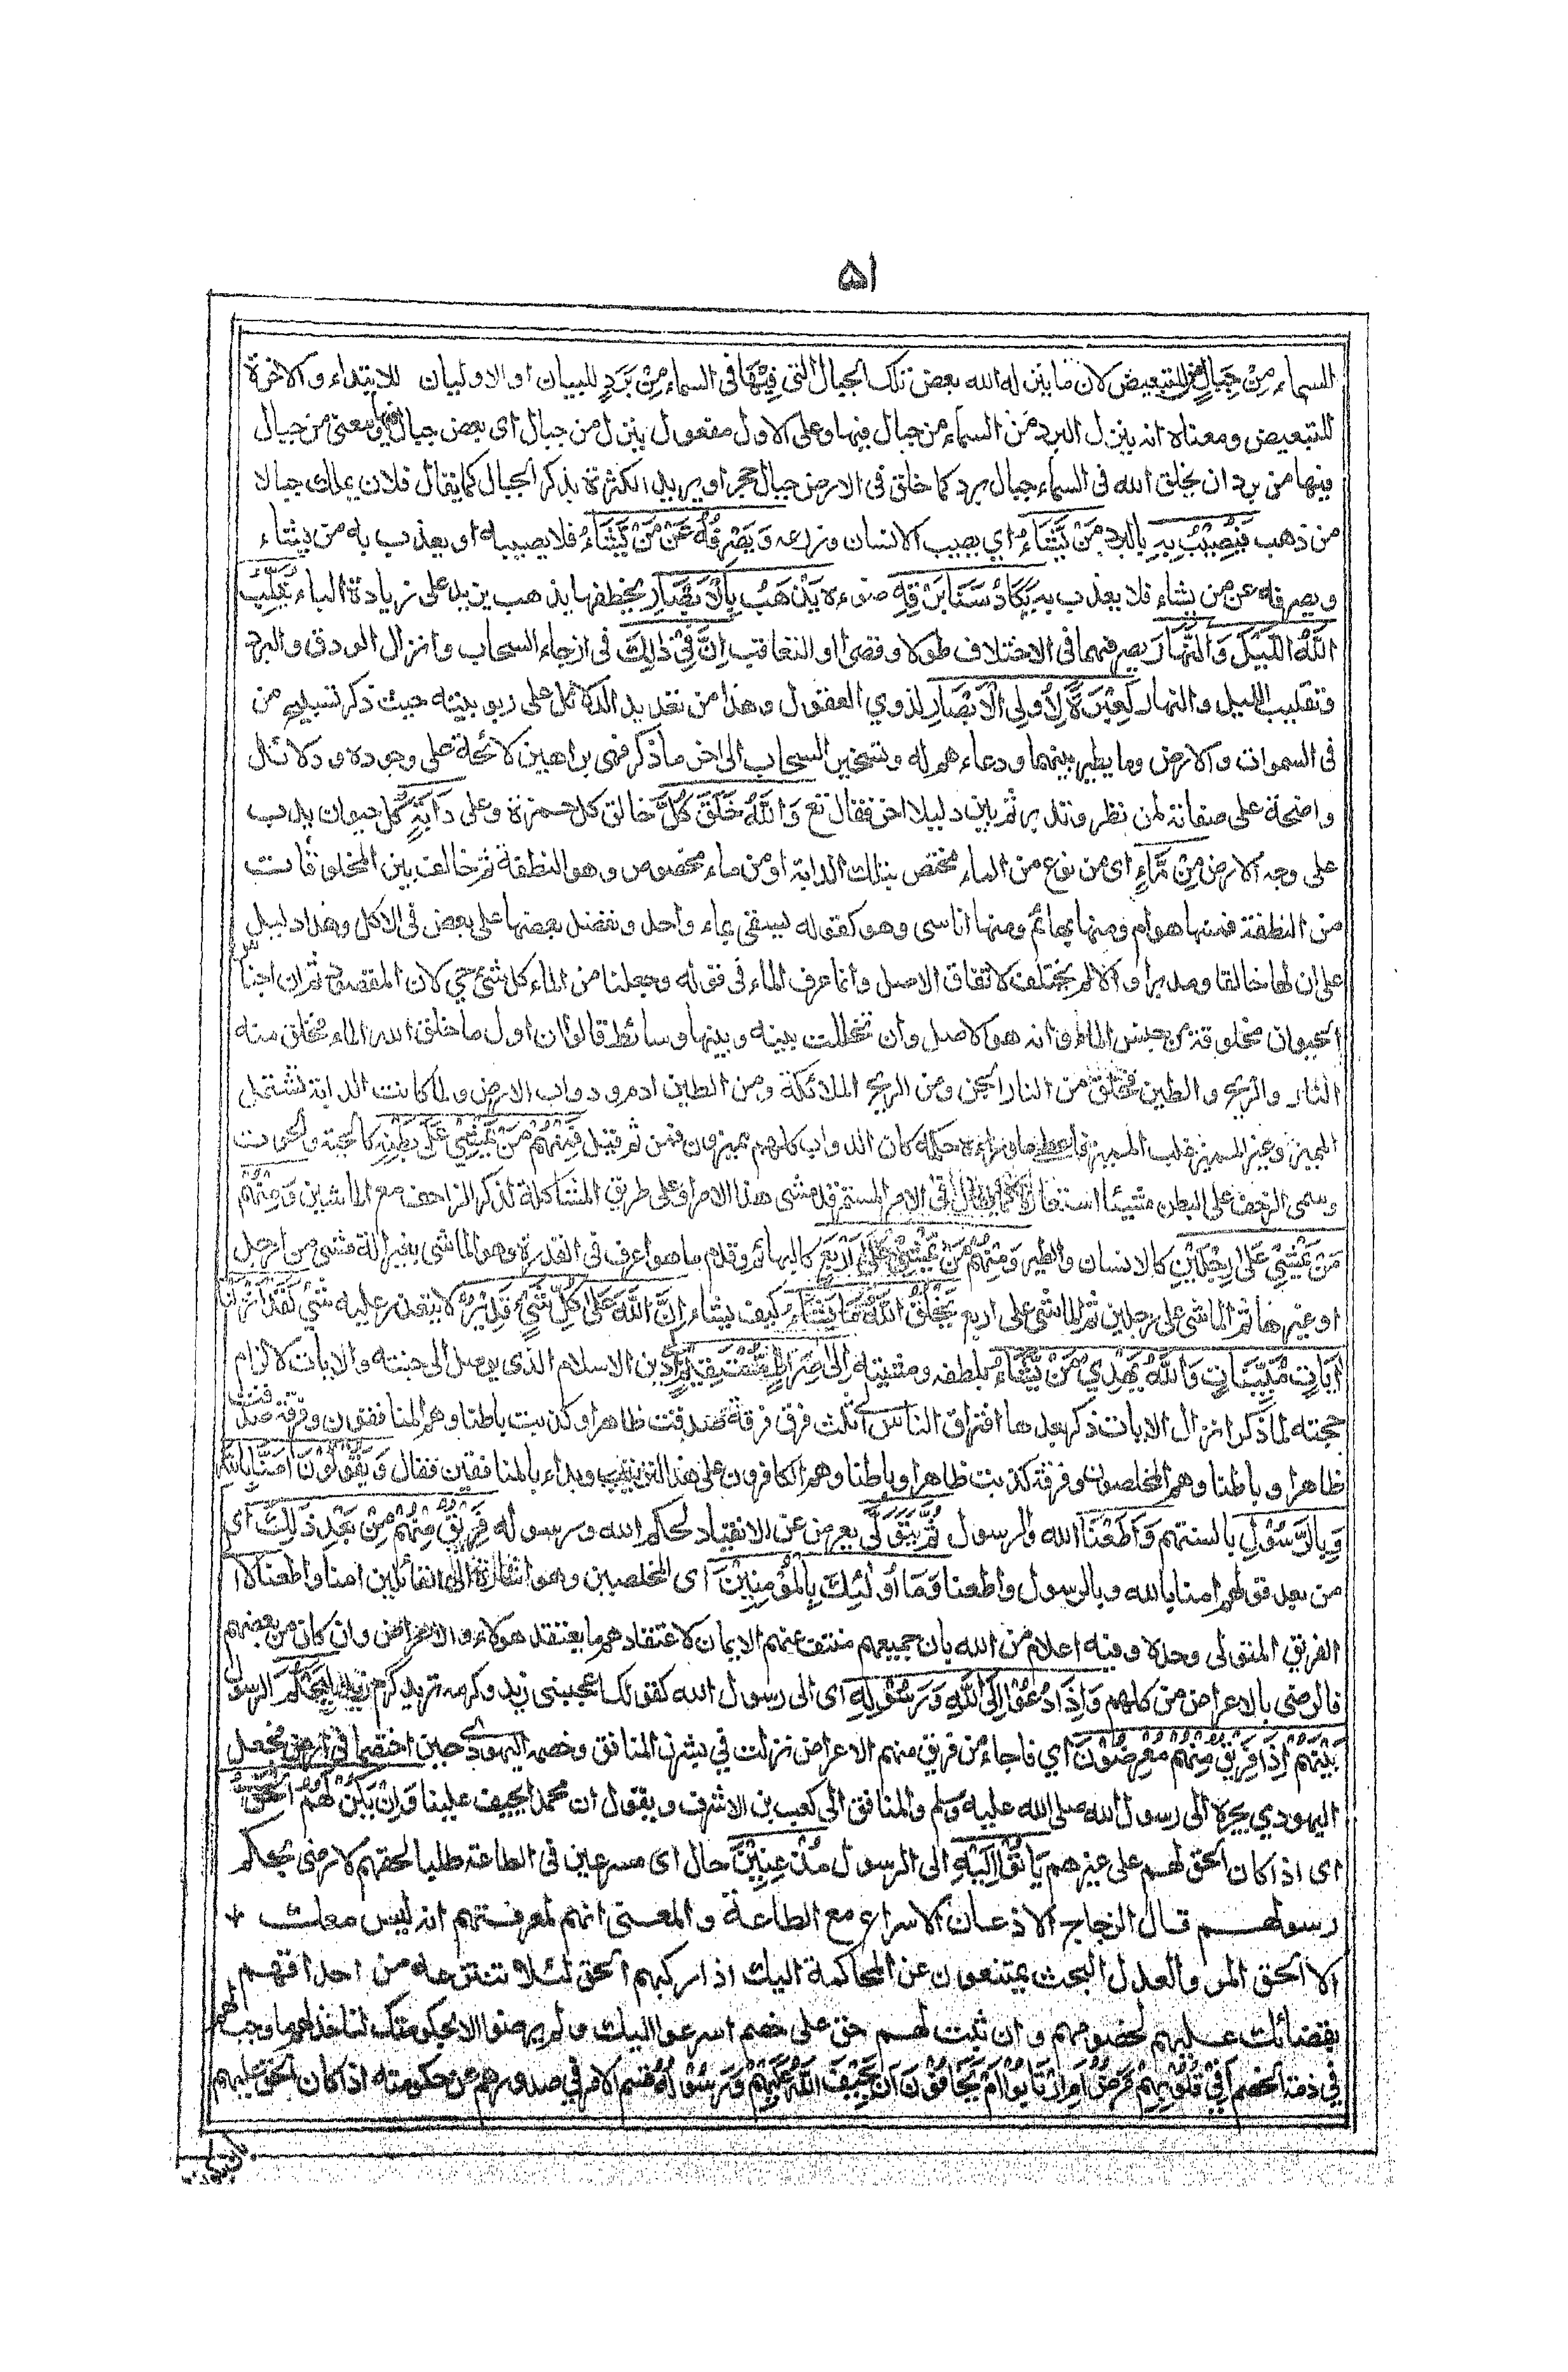 ٥١
السماء مِنْ جِبَالٍ من للتبعيض لان ما ينزله الله بعض تلك الجبال التى فِيْهَا فى السماء مِنْ بَرَدٍ للبيان او الاوليان للابتداء والاخرة
للتبعيض ومعناه انه ينزل البرد من السماء من جبال فيها وعلى الاول مفعول ينزل من جبال اى بعض جبال فيها ومعنى من جبال
فيها من برد ان يخلق الله فى السماء جبال برد كما خلق فى الارض جبال حجر او يريد الكثرة بذكر الجبال كما يقال فلان يملك جبالا
من ذهب فَيُصِيْبُ بِهٖ بالبرد مَنْ يَّشَآءُ اي يصيب الانسان وزرعه وَيَصْرِفُهٗ عَنْ مَّنْ يَّشَآءُ فلا يصيبه او يعذب به من يشاء
ويصرفه عن من يشاء فلا يعذب به يَكَادُ سَنَا بَرْقِهٖ ضوءه يَذْهَبُ بِالْاَبْصَارِ يخطفها يذهب يزيد على زيادة الباء يُقَلِّبُ
اللّٰهُ الَّيْلَ وَالنَّهَارَ يصرفهما فى الاختلاف طولا وقصرا او التعاقب اِنَّ فِيْ ذٰلِكَ فى ازجاء السحاب وانزال الودق والبرد
وتقليب الليل والنهار لَعِبْرَةً لِّاُولِى الْاَبْصَارِ لذوي العقول وهذا من تعديد الدلائل على ربوبيته حيث ذكر تسبيح من
فى السموات والارض وما يطير بينهما ودعاءهم له وتسخير السحاب الى اخر ما ذكر فهى براهين لائحة على وجوده ودلائل
واضحة على صفاته لمن نظر وتدبر ثم بين دليلا اخر فقال تع وَاللّٰهُ خَلَقَ كُلَّ خالق كل حمزة وعلى دَآبَّةٍ كل حيوان يدب
على وجه الارض مِنْ مَّآءٍ اى من نوع من الماء مختص بتلك الدابة او من ماء مخصوص وهو النطفة ثم خالف بين المخلوقات
من النطفة فمنها هوام ومنها بهائم ومنها اناسى وهو كقوله يسقى بماء واحد ونفضل بعضها على بعض فى الاكل وهذا دليل
على ان لها خالقا ومدبرا والا لم يختلف لاتفاق الاصل وانما عرف الماء فى قوله وجعلنا من الماء كل شئ حي لان المقصود ثم ان اجناس
الحيوان مخلوقة من جنس الماء وانه هو الاصل وان تخللت بينه وبينها وسائط قالوا ان اول ما خلق الله الماء فخلق منه
النار والريح والطين فخلق من النار الجن ومن الريح الملائكة ومن الطين ادم ودواب الارض ولما كانت الدابة تشتمل
المميز وغير المميز غلب المميز فاعطى ما وراءه حكمه كان الدواب كلهم مميزون فمن ثم قيل فَمِنْهُمْ مَّنْ يَّمْشِيْ عَلٰى بَطْنِهٖ كالحية والحوت
وسمى الزحف على البطن مشيئا استعارة كما يقال فى الامر المستمر قد مشى هذا الامر او على طريق المشاكلة لذكر الزاحف مع الماشين وَمِنْهُمْ
مَّنْ يَّمْشِيْ عَلٰى رِجْلَيْنِ كالانسان والطير وَمِنْهُمْ مَّنْ يَّمْشِيْ عَلٰى اَرْبَعٍ كالبهائم وقدم ما هو اعرف فى القدرة وهو الماشى بغير الة مشى من ارجل
او غيرها ثم الماشى على رجلين ثم الماشى على اربع يَخْلُقُ اللّٰهُ مَا يَشَآءُ كيف يشاء اِنَّ اللّٰهَ عَلٰى كُلِّ شَيْءٍ قَدِيْرٌ لا يتعذر عليه شئ لَقَدْ اَنْزَلْنَا
اٰيٰتٍ مُّبَيِّنٰتٍ وَاللّٰهُ يَهْدِيْ مَنْ يَّشَآءُ بلطفه ومشيته اِلٰى صِرَاطٍ مُّسْتَقِيْمٍ الى دين الاسلام الذى يوصل الى جنته والايات لالزام
حجته لما ذكر انزال الايات ذكر بعدها افتراق الناس الى ثلث فرق فرقة صدقت ظاهرا وكذبت باطنا وهم المنافقون وفرقة صدقت
ظاهرا وباطنا وهم المخلصون وفرقة كذبت ظاهرا وباطنا وهم الكافرون على هذا الترتيب وبداء بالمنافقين فقال وَيَقُوْلُوْنَ اٰمَنَّا بِاللّٰهِ
وَبِالرَّسُوْلِ بالسنتهم وَاَطَعْنَا الله والرسول ثُمَّ يَتَوَلّٰى يعرض عن الانقياد لحكم الله ورسوله فَرِيْقٌ مِّنْهُمْ مِّنْ بَعْدِ ذٰلِكَ اى
من بعد قولهم امنا بالله وبالرسول واطعنا وَمَآ اُولٰئِكَ بِالْمُؤْمِنِيْنَ اى المخلصين وهو اشارة الى القائلين امنا واطعنا لا الى
الفريق المتولى وحده وفيه اعلام من الله بان جميعهم منتف عنهم الايمان لاعتقادهم ما يعتقد هولاء والاعراض وان كان من بعضهم
فالرضى بالاعراض من كلهم وَاِذَا دُعُوْا اِلَى اللّٰهِ وَرَسُوْلِهٖ اى الى رسول الله كقولك اعجبنى زيد وكرمه تريد كرم زيد لِيَحْكُمَ الرسول
بَيْنَهُمْ اِذَا فَرِيْقٌ مِّنْهُمْ مُّعْرِضُوْنَ اي فاجاء من فريق منهم الاعراض نزلت في بشر المنافق وخصمه اليهودى حين اختصما فى ارض فجعل
اليهودي يجره الى رسول الله صلى الله عليه وسلم والمنافق الى كعب بن الاشرف ويقول ان محمدا يحيف علينا وَاِنْ يَّكُنْ لَّهُمُ الْحَقُّ
اى اذا كان الحق لهم على غيرهم يَاْتُوْٓا اِلَيْهِ الى الرسول مُذْعِنِيْنَ حال اى مسرعين فى الطاعة طلبا لحقهم لا رضى بحكم
رسولهم قال الزجاج الاذعان الاسراع مع الطاعة والمعنى انهم لمعرفتهم انه ليس معك
الا الحق المر والعدل البحث يمتنعون عن المحاكمة اليك اذا ركبهم الحق لئلا تنتزعه من احداقهم
بقضائك عليهم لخصومهم وان ثبت لهم حق على خصم اسرعوا اليك ولم يرضوا الا بحكومتك لتاخذ لهم ما وجب لهم
في ذمة الخصم اَفِيْ قُلُوْبِهِمْ مَّرَضٌ اَمِ ارْتَابُوْٓا اَمْ يَخَافُوْنَ اَنْ يَّحِيْفَ اللّٰهُ عَلَيْهِمْ وَرَسُوْلُهٗ قسم الامر في صدورهم عن حكومته اذا كان الحق عليهم